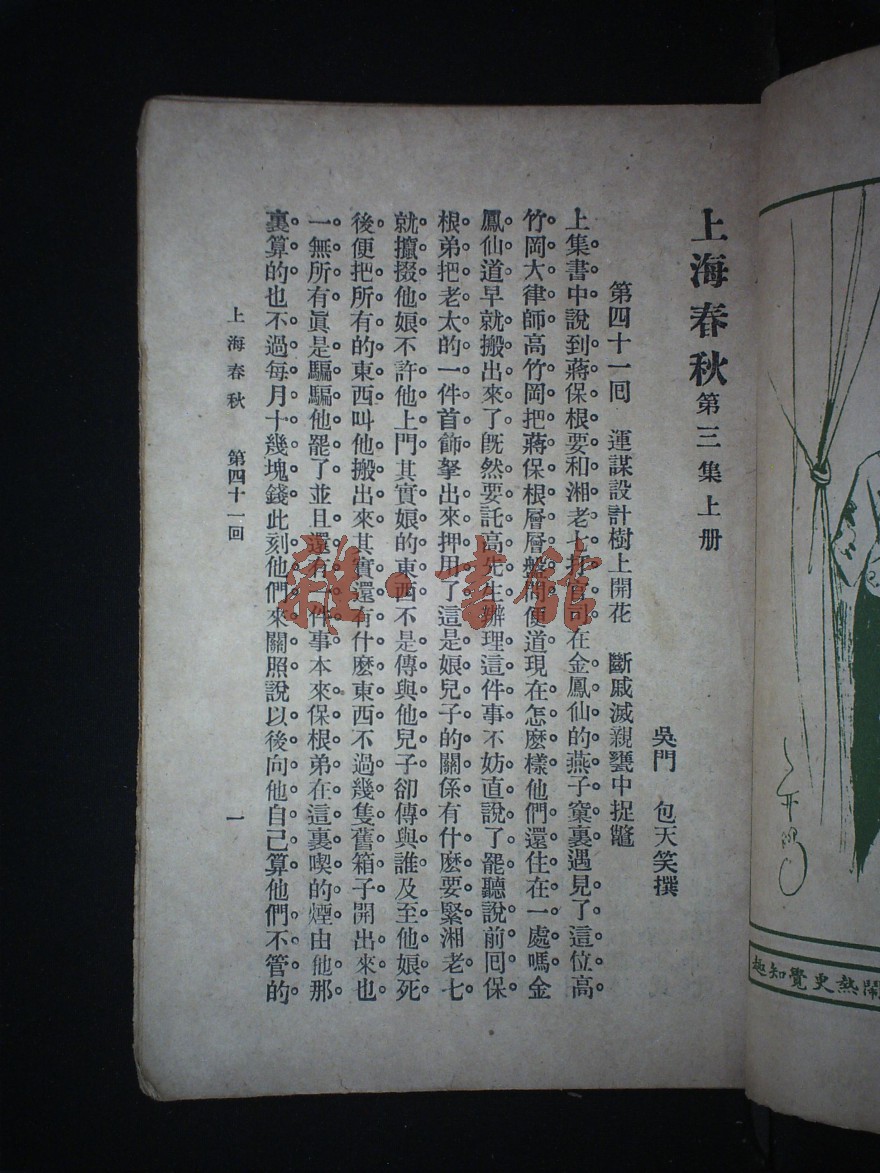 上海春秋第三集上册
吳門　包天笑撰
第四十一囘　運謀設計樹上開花　斷戚滅親甕中捉鼈
上集書中說到蔣保根要和湘老七打官司在金鳳仙的燕子窠裏遇見了這位高
竹岡大律師高竹岡把蔣保根層層盤問便道現在怎麼樣他們還住在一處嗎金
鳳仙道早就搬出來了旣然要託高先生辦理這件事不妨直說了罷聽說前囘保
根弟把老太的一件首飾拏出來押用了這是娘兒子的關係有什麼要緊湘老七
就攛掇他娘不許他上門其實娘的東西不是傳與他兒子卻傳與誰及至他娘死
後便把所有的東西叫他搬出來其實還有什麼東西不過幾隻舊箱子開出來也
一無所有眞是騙騙他罷了並且還有一件事本來保根弟在這裏喫的煙由他那
裏算的也不過每月十幾塊錢此刻他們來關照說以後向他自己算他們不管的
上海春秋　第四十一回
一
雜·書館
鬧熱更覺知趣